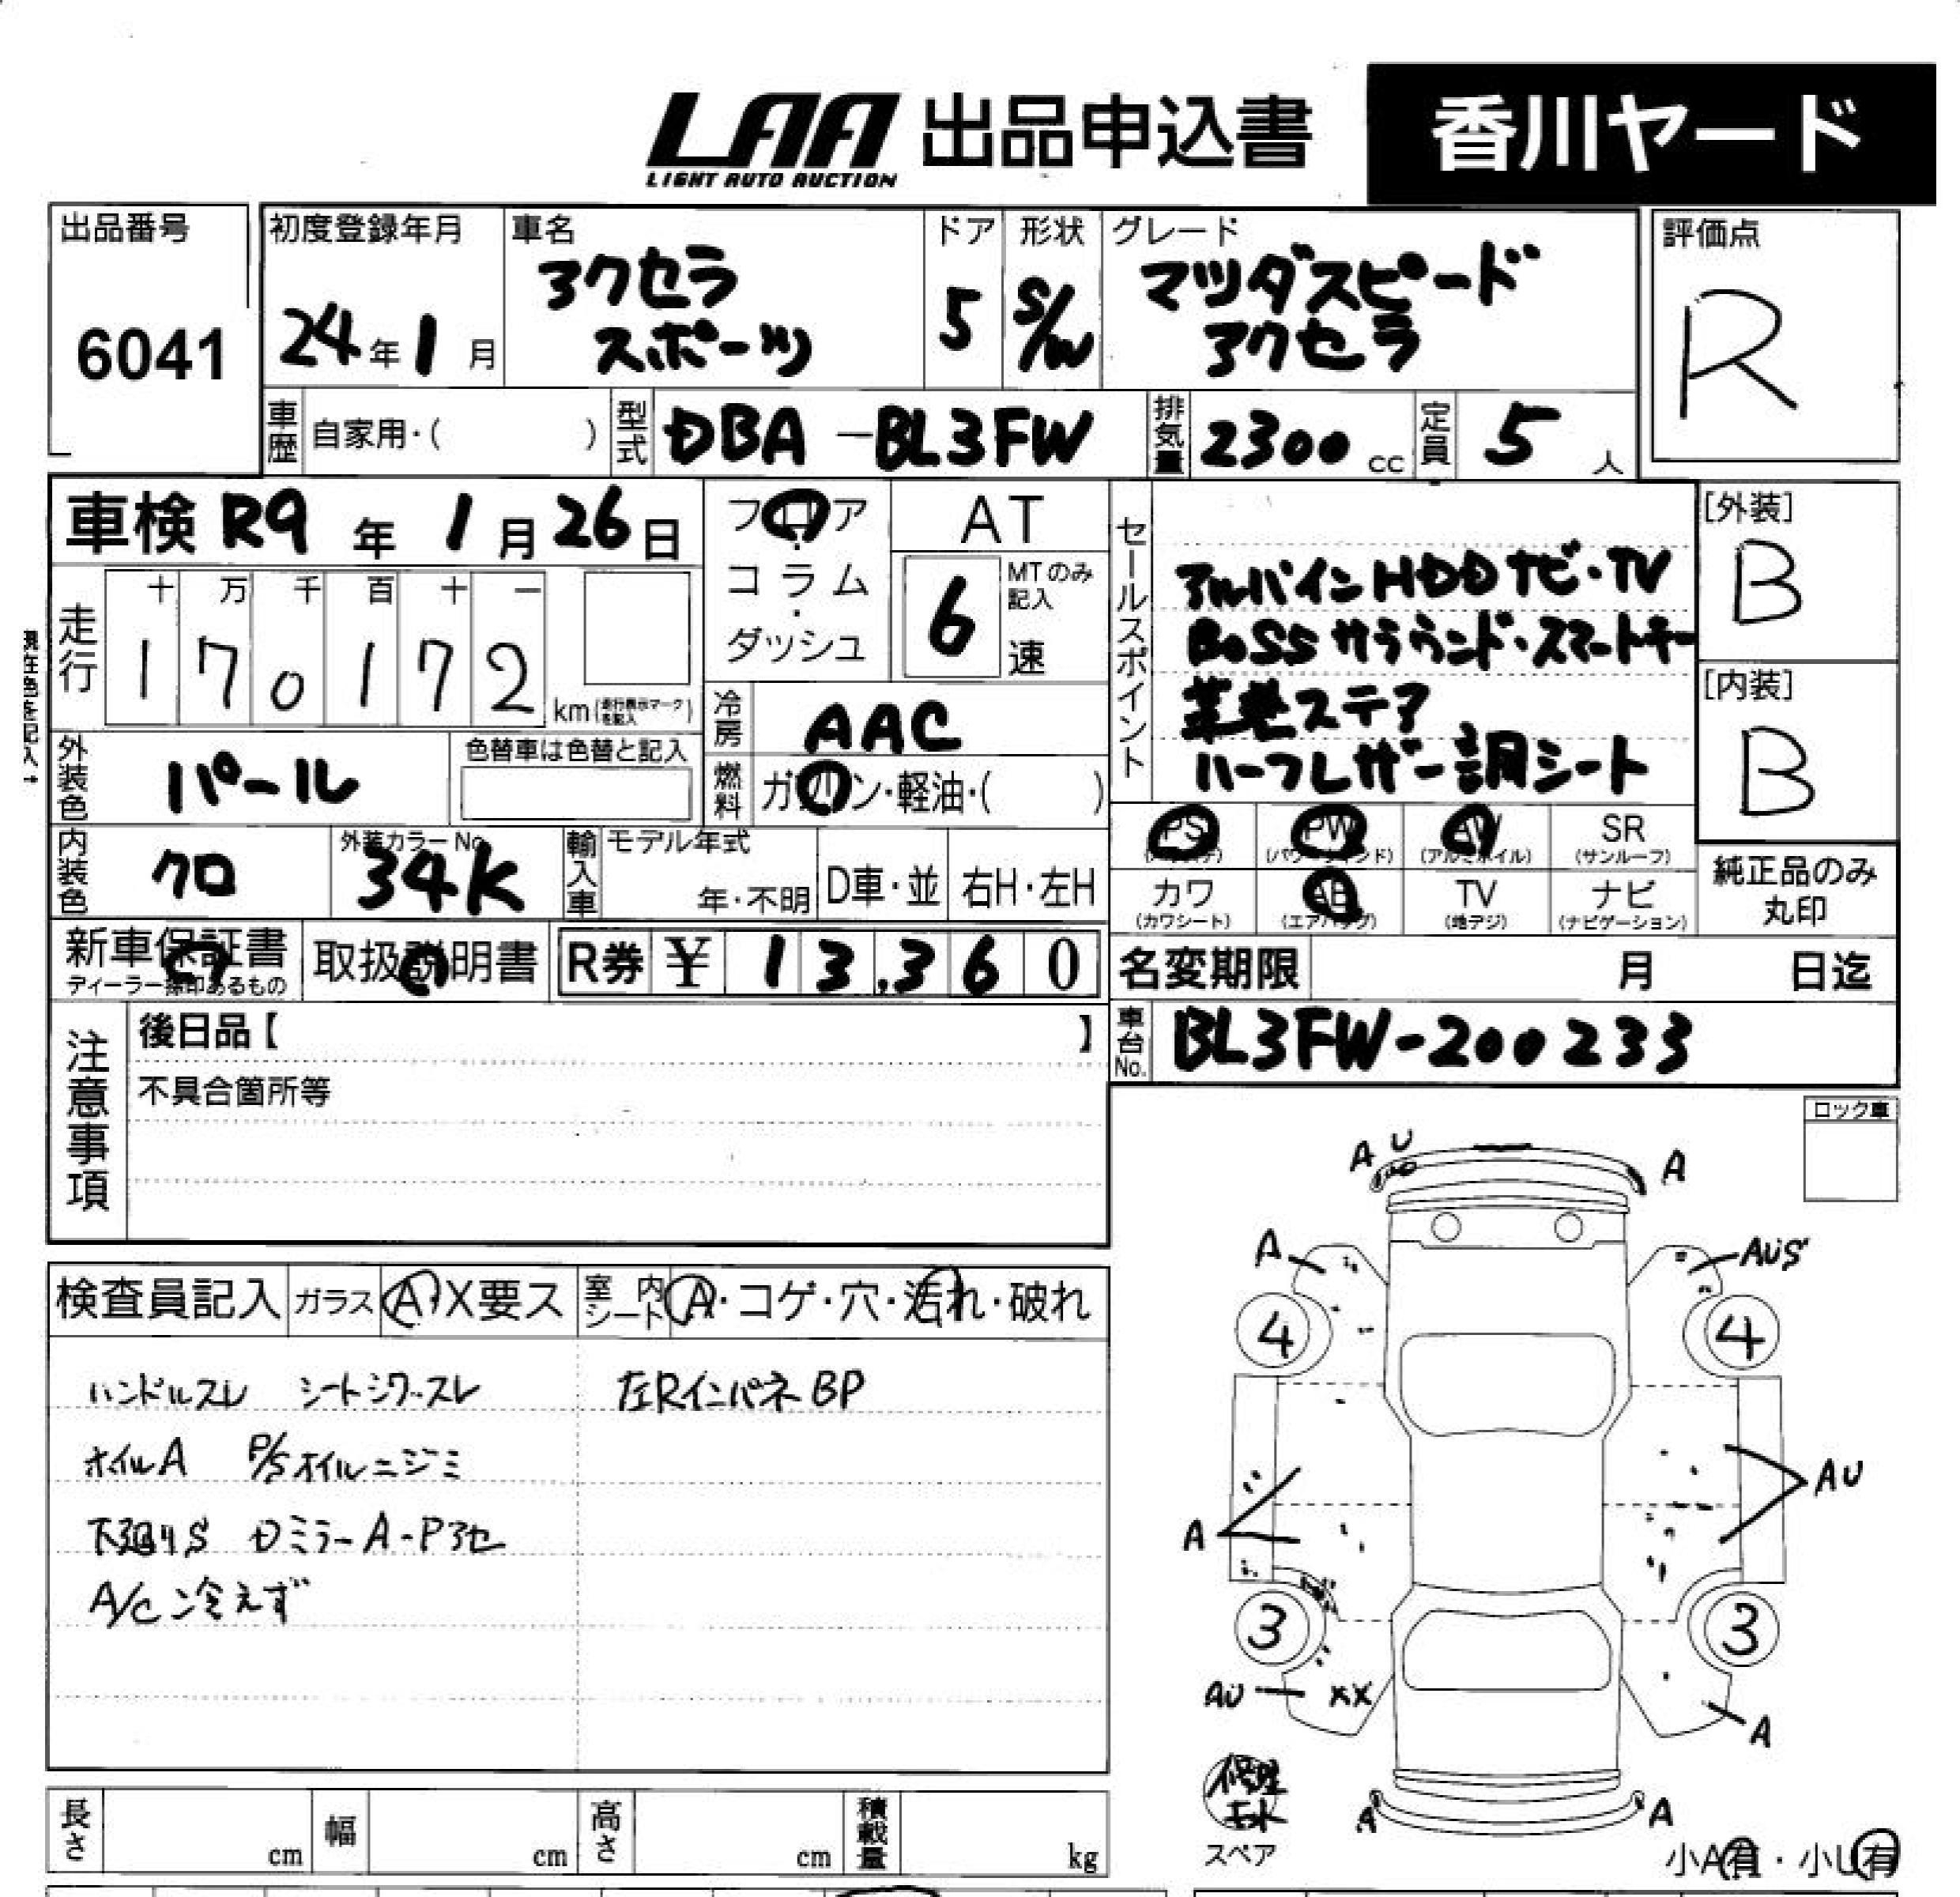 LAA 出品申込書 香川ヤード
LIGHT AUTO AUCTION
出品番号
6041
初度登録年月
24年1月
車名
アクセラ
スポーツ
ドア
5
形状
S/W
グレード
マツダスピード
アクセラ
評価点
R
車歴 自家用・( )
型式 DBA-BL3FW
排気量 2300cc
定員 5人
車検 R9年1月26日
フロア・コラム・ダッシュ
AT
6速
MTのみ記入
走行
十 万 千 百 十 一
1 7 0 1 7 2
km(走行表示マークを記入)
現在色を記入→
冷房 AAC
燃料 ガソリン・軽油・( )
外装色 パール
色替車は色替と記入
内装色 クロ
外装カラーNo.
34K
輸入車 モデル年式
年・不明
D車・並
右H・左H
セールスポイント
アルパインHDDナビ・TV
BOSSサラウンド・スマートキー
革巻ステア
ハーフレザー調シート
[外装]
B
[内装]
B
PS PW AW SR
(パワステ) (パワーウインド) (アルミホイル) (サンルーフ)
カワ AB TV ナビ
(カワシート) (エアバッグ) (地デジ) (ナビゲーション)
純正品のみ
丸印
新車保証書
ディーラー捺印あるもの
取扱説明書
R券 ¥ 13,360
名変期限 月 日迄
車台No. BL3FW-200233
注意事項
後日品【 】
不具合箇所等
ロック車
検査員記入 ガラス A・X要ス 室内シート A・コゲ・穴・汚れ・破れ
ハンドルスレ シートシワ・スレ 左Rインパネ BP
オイルA P/Sオイルニジミ
下廻りS Dミラー A-Pアセ
A/C 冷えず
A U A
A AUS
4 4
A AU
3 3
AU XX A
修理キット
スペア
A A
小A有・小U有
長さ cm 幅 cm 高さ cm 積載量 kg